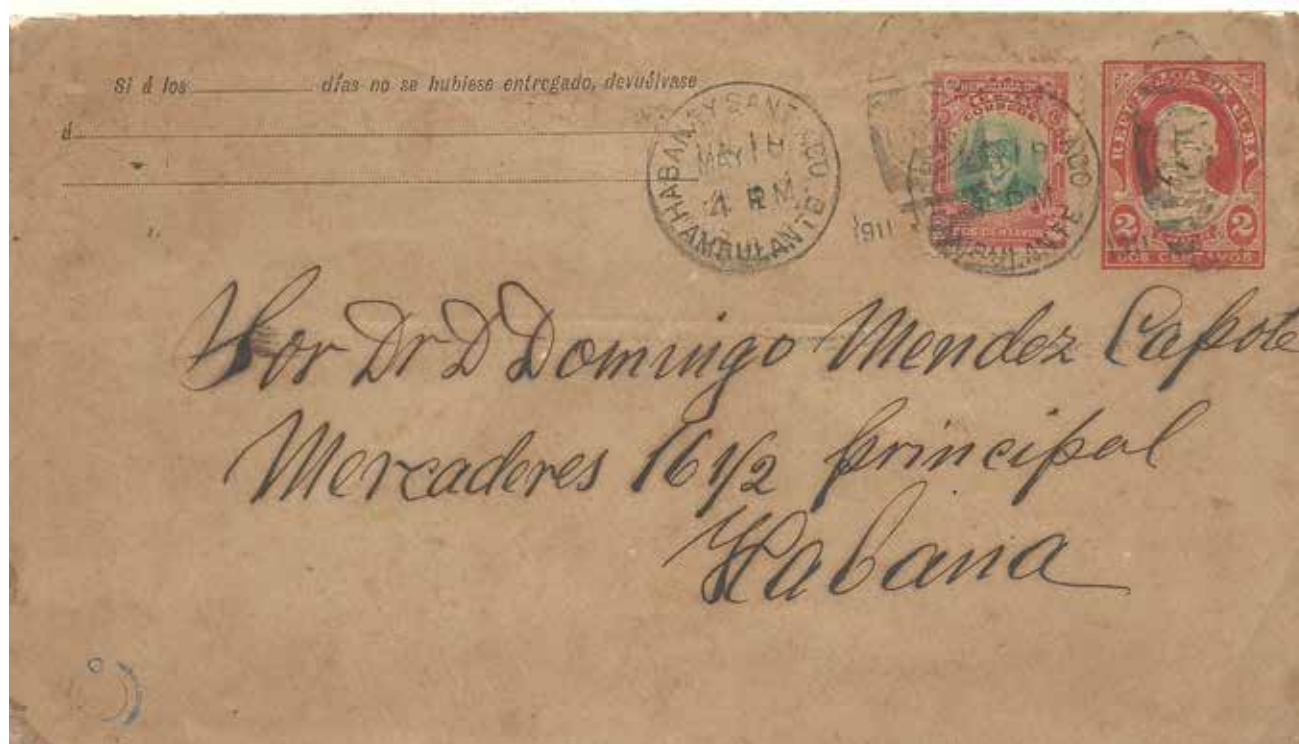 Si á los días no se hubiese entregado, devuélvase
á
HABANA Y SANT AGO
MAY 18
4 P M
AMBULANTE
1911
CORREOS
DOS CENTAVOS
AMBULANTE
REPUBLICA DE CUBA
2 2
DOS CENTAVOS
Sor Dr D Domingo Mendez Capote
Mercaderes 16 1/2 principal
Habana